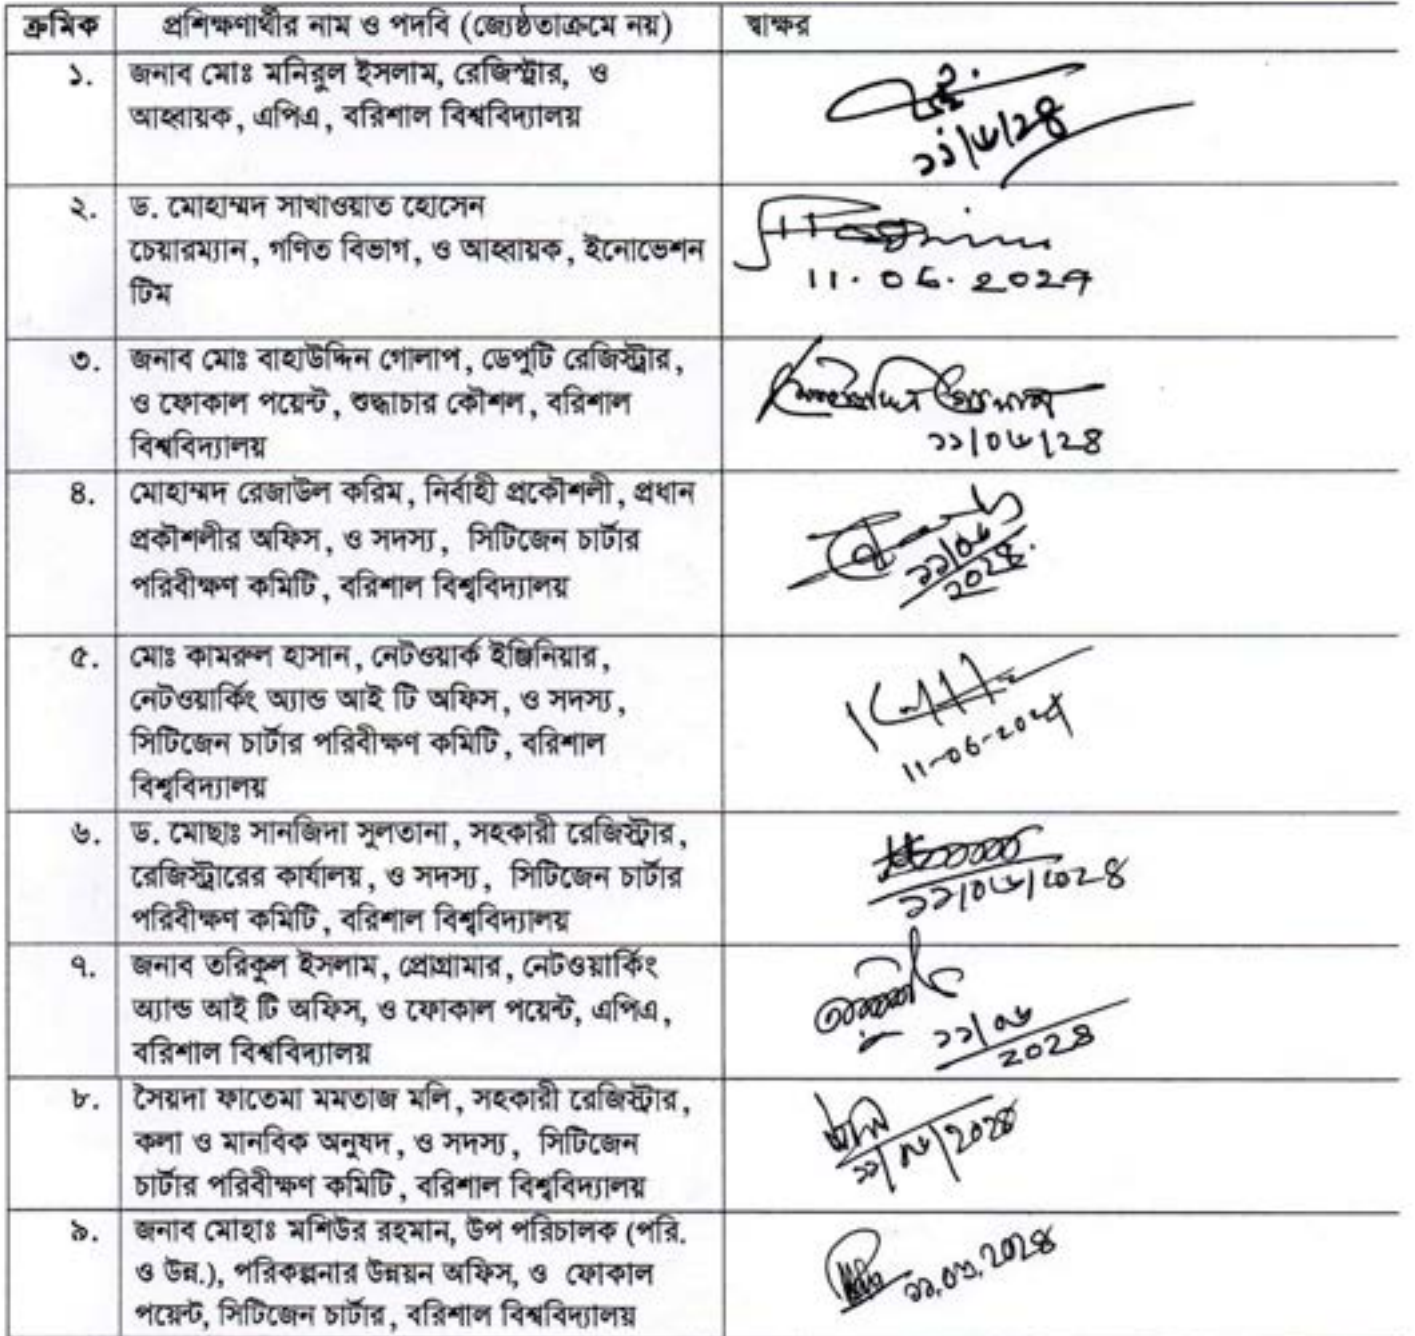 ক্রমিক প্রশিক্ষণার্থীর নাম ও পদবি (জ্যেষ্ঠতাক্রমে নয়) স্বাক্ষর
১. জনাব মোঃ মনিরুল ইসলাম, রেজিস্ট্রার, ও
আহ্বায়ক, এপিএ, বরিশাল বিশ্ববিদ্যালয়
১১/৬/২৪
২. ড. মোহাম্মদ সাখাওয়াত হোসেন
চেয়ারম্যান, গণিত বিভাগ, ও আহ্বায়ক, ইনোভেশন
টিম
11.06.2024
৩. জনাব মোঃ বাহাউদ্দিন গোলাপ, ডেপুটি রেজিস্ট্রার,
ও ফোকাল পয়েন্ট, শুদ্ধাচার কৌশল, বরিশাল
বিশ্ববিদ্যালয়
১১/০৬/২৪
৪. মোহাম্মদ রেজাউল করিম, নির্বাহী প্রকৌশলী, প্রধান
প্রকৌশলীর অফিস, ও সদস্য, সিটিজেন চার্টার
পরিবীক্ষণ কমিটি, বরিশাল বিশ্ববিদ্যালয়
১১/০৬
২০২৪
৫. মোঃ কামরুল হাসান, নেটওয়ার্ক ইঞ্জিনিয়ার,
নেটওয়ার্কিং অ্যান্ড আই টি অফিস, ও সদস্য,
সিটিজেন চার্টার পরিবীক্ষণ কমিটি, বরিশাল
বিশ্ববিদ্যালয়
11-06-2024
৬. ড. মোছাঃ সানজিদা সুলতানা, সহকারী রেজিস্ট্রার,
রেজিস্ট্রারের কার্যালয়, ও সদস্য, সিটিজেন চার্টার
পরিবীক্ষণ কমিটি, বরিশাল বিশ্ববিদ্যালয়
১১/০৬/২০২৪
৭. জনাব তরিকুল ইসলাম, প্রোগ্রামার, নেটওয়ার্কিং
অ্যান্ড আই টি অফিস, ও ফোকাল পয়েন্ট, এপিএ,
বরিশাল বিশ্ববিদ্যালয়
১১/০৬
২০২৪
৮. সৈয়দা ফাতেমা মমতাজ মলি, সহকারী রেজিস্ট্রার,
কলা ও মানবিক অনুষদ, ও সদস্য, সিটিজেন
চার্টার পরিবীক্ষণ কমিটি, বরিশাল বিশ্ববিদ্যালয়
১১/০৬/২০২৪
৯. জনাব মোহাঃ মশিউর রহমান, উপ পরিচালক (পরি.
ও উন্ন.), পরিকল্পনার উন্নয়ন অফিস, ও ফোকাল
পয়েন্ট, সিটিজেন চার্টার, বরিশাল বিশ্ববিদ্যালয়
১১.০৬.২০২৪